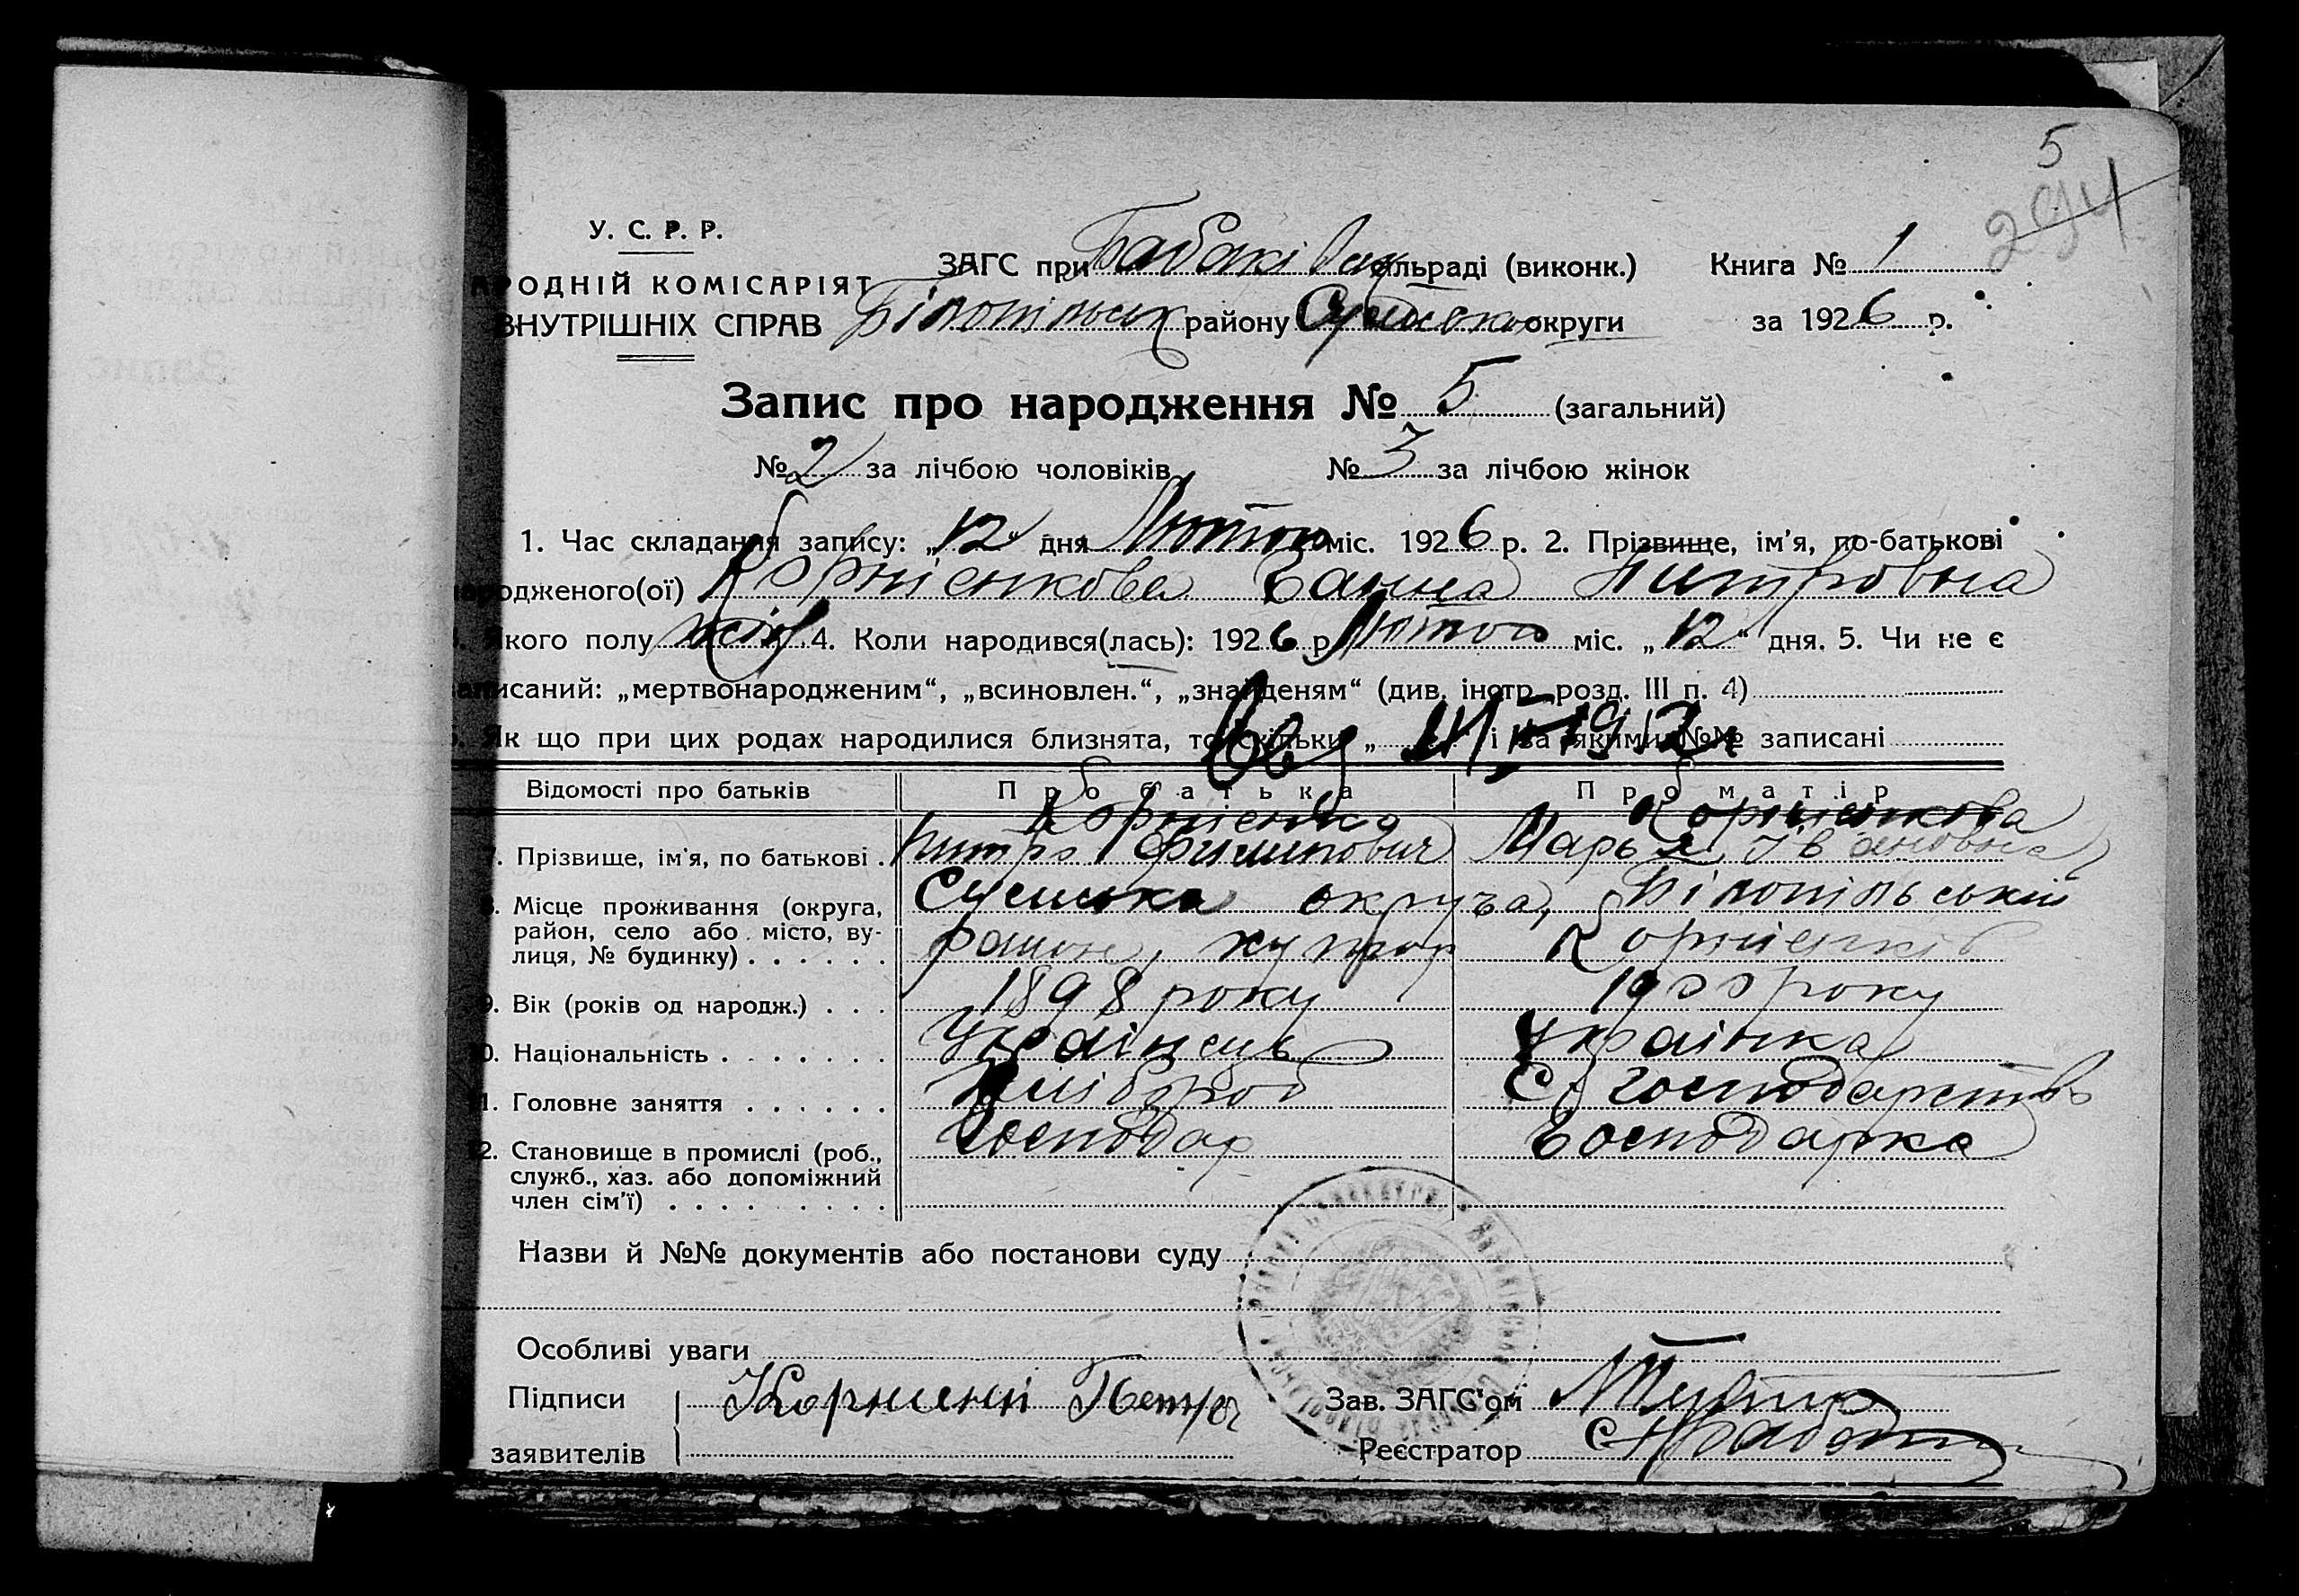 5
294
У. С. Р. Р.
ЗАГС при сільраді (виконк.) Книга № 1
НАРОДНІЙ КОМІСАРІЯТ
ВНУТРІШНІХ СПРАВ Білопільськ району Сумсько округи за 1926 р.
Запис про народження № 5 (загальний)
№ 2 за лічбою чоловіків № 3 за лічбою жінок
1. Час складання запису: „12“ дня Лютого міс. 1926 р. 2. Прізвище, ім'я, по-батькові
народженого(ої) Корниєнкова Ганна Питровна
3. Якого полу жіноч 4. Коли народився(лась): 1926 р. Лютого міс. „12“ дня. 5. Чи не є
записаний: „мертвонародженим“, „всиновлен.“, „знайденям“ (див. інстр. розд. III п. 4)
6. Як що при цих родах народилися близнята, то скільки „ “ і за якими №№ записані
Відомості про батьків Про батька Про матір
Корниенко Корниенкова
7. Прізвище, ім'я, по батькові . Питро Филипович Марья Івановна
8. Місце проживання (округа, Сумська округа, Білопільський
район, село або місто, ву- район, хутор Корниєнків
лиця, № будинку) . . . . . .
9. Вік (років од народж.) . . . 1898 року 1900 року
10. Національність . . . . . . . Українець Українка
11. Головне заняття . . . . . . Хлібороб С господарство
12. Становище в промислі (роб., Господар Господарка
служб., хаз. або допоміжний
член сім'ї) . . . . . . . . .
Назви й №№ документів або постанови суду
Особливі уваги
Підписи Петро Зав. ЗАГС'ом
заявителів Реєстратор